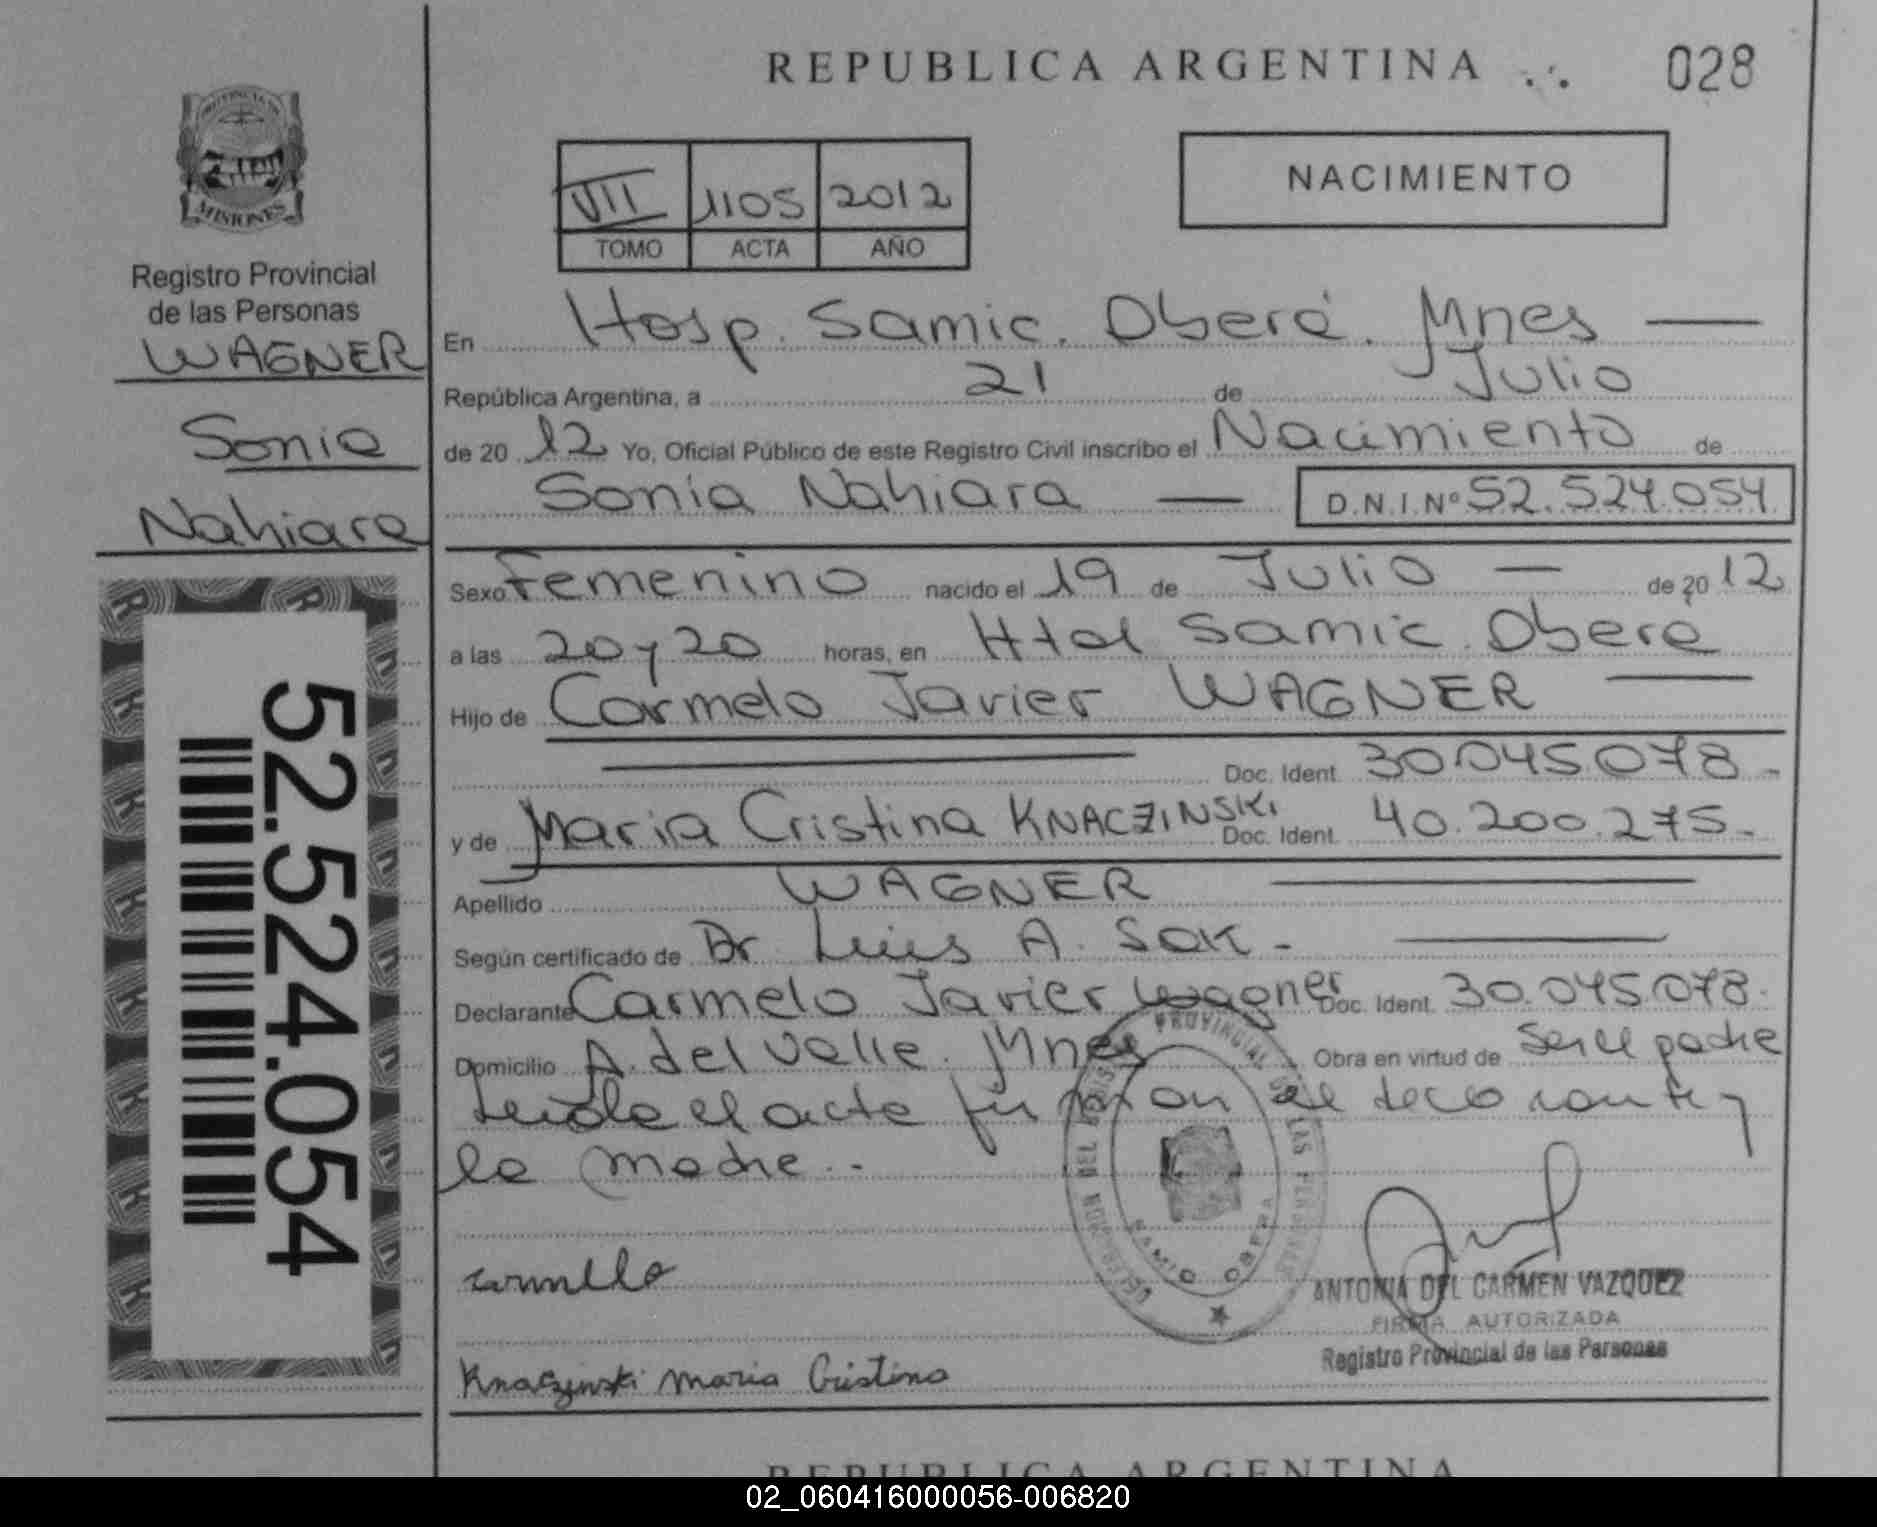 REPUBLICA ARGENTINA
028
MISIONES
Registro Provincial
de las Personas
WAGNER
Sonia
Nahiara
52.524.054
VII 1105 2012
TOMO ACTA AÑO
NACIMIENTO
En Hosp. Samic. Oberá. Mnes
República Argentina, a 21 de Julio
de 20 12 Yo, Oficial Público de este Registro Civil inscribo el Nacimiento de
Sonia Nahiara — D.N.I.Nº 52.524.054
Sexo Femenino nacido el 19 de Julio — de 20 12
a las 20 y 20 horas, en Htal Samic. Oberá
Hijo de Carmelo Javier WAGNER
Doc. Ident. 30.045.078.-
y de Maria Cristina KNACZINSKI Doc. Ident. 40.200.275.-
Apellido WAGNER
Según certificado de Dr. Luis A. Sak -
Declarante Carmelo Javier Wagner Doc. Ident. 30.045.078.
Domicilio A. del Valle. Mnes Obra en virtud de Ser el padre
Leida el acta firman el declarante y
la madre.-
SAMIC OBERA
ANTONIA DEL CARMEN VAZQUEZ
FIRMA AUTORIZADA
Registro Provincial de las Personas
Knaczinski Maria Cristina
REPUBLICA ARGENTINA
02_060416000056-006820